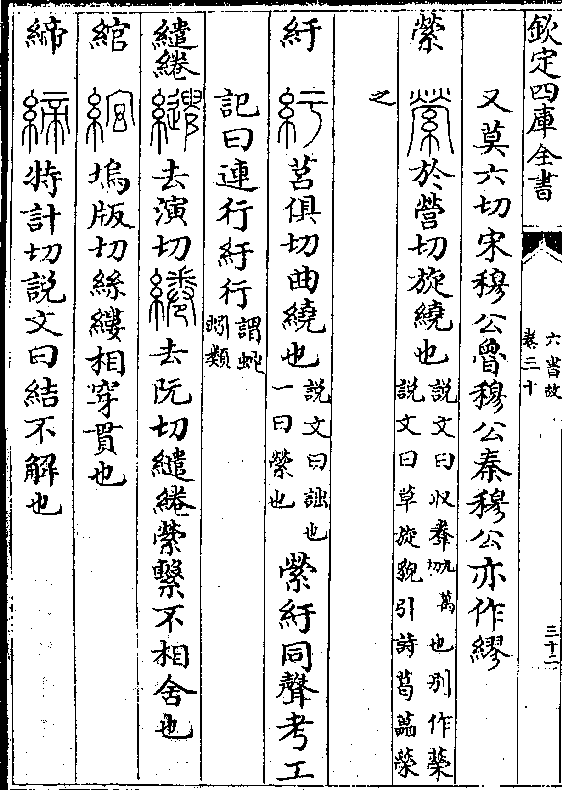 欽定四庫全書
六書故
卷三十
三十二
又莫六切宋穆公魯穆公秦穆公亦作繆
縈 於營切旋繞也說文曰收𢍏也別作蘃說文曰草旋貌引詩葛藟縈
之
紆 邕俱切曲繞也說文曰詘也一曰縈也縈紆同聲考工
記曰連行紆行謂蛇蚓類
繾綣 去演切 去阮切繾綣縈繫不相舍也
綰 塢版切絲縷相穿貫也
締 特計切說文曰結不解也